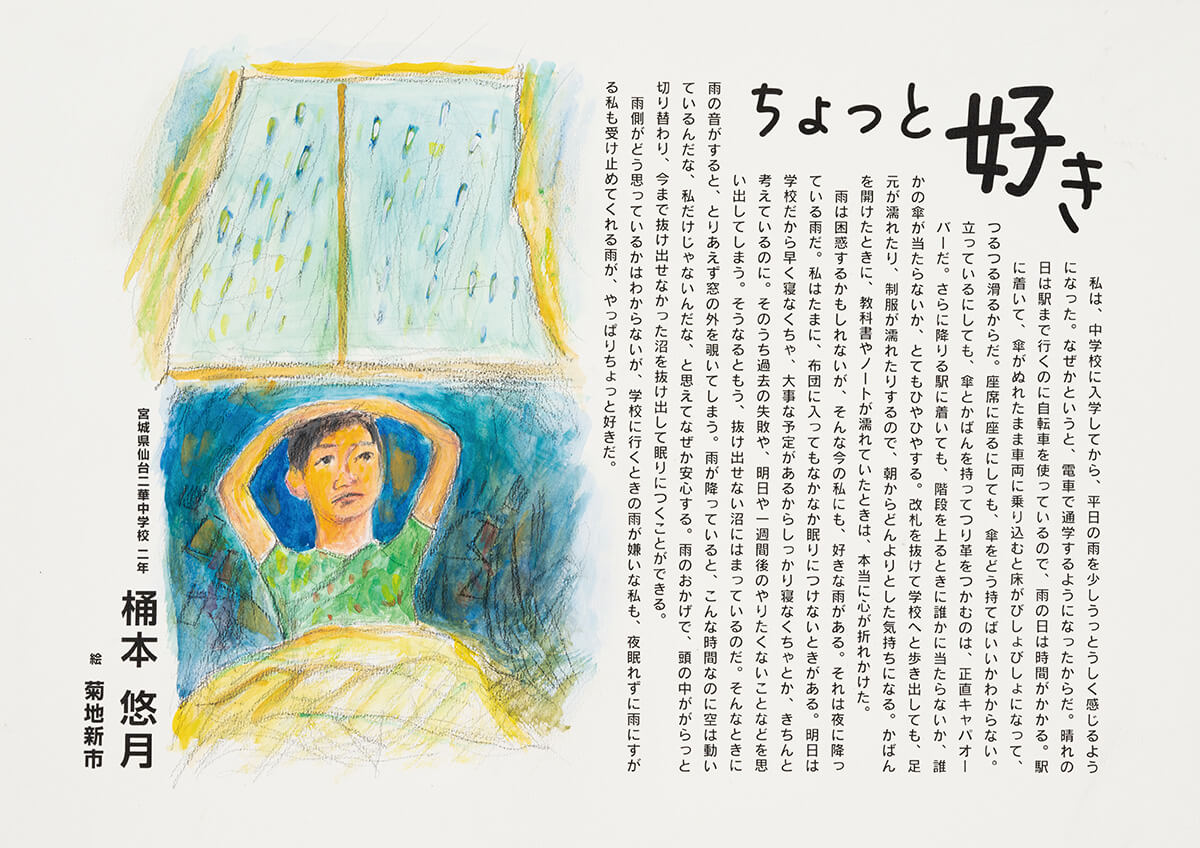 ちょっと好き
私は、中学校に入学してから、平日の雨を少しうっとうしく感じるよう
になった。なぜかというと、電車で通学するようになったからだ。晴れの
日は駅まで行くのに自転車を使っているので、雨の日は時間がかかる。駅
に着いて、傘がぬれたまま車両に乗り込むと床がびしょびしょになって、
つるつる滑るからだ。座席に座るにしても、傘をどう持てばいいかわからない。
立っているにしても、傘とかばんを持ってつり革をつかむのは、正直キャパオー
バーだ。さらに降りる駅に着いても、階段を上るときに誰かに当たらないか、誰
かの傘が当たらないか、とてもひやひやする。改札を抜けて学校へと歩き出しても、足
元が濡れたり、制服が濡れたりするので、朝からどんよりとした気持ちになる。かばん
を開けたときに、教科書やノートが濡れていたときは、本当に心が折れかけた。
雨は困惑するかもしれないが、そんな今の私にも、好きな雨がある。それは夜に降っ
ている雨だ。私はたまに、布団に入ってもなかなか眠りにつけないときがある。明日は
学校だから早く寝なくちゃ、大事な予定があるからしっかり寝なくちゃとか、きちんと
考えているのに。そのうち過去の失敗や、明日や一週間後のやりたくないことなどを思
い出してしまう。そうなるともう、抜け出せない沼にはまっているのだ。そんなときに
雨の音がすると、とりあえず窓の外を覗いてしまう。雨が降っていると、こんな時間なのに空は動い
ているんだな、私だけじゃないんだな、と思えてなぜか安心する。雨のおかげで、頭の中ががらっと
切り替わり、今まで抜け出せなかった沼を抜け出して眠りにつくことができる。
雨側がどう思っているかはわからないが、学校に行くときの雨が嫌いな私も、夜眠れずに雨にすが
る私も受け止めてくれる雨が、やっぱりちょっと好きだ。
宮城県仙台二華中学校 二年
桶本 悠月
絵 菊地新市